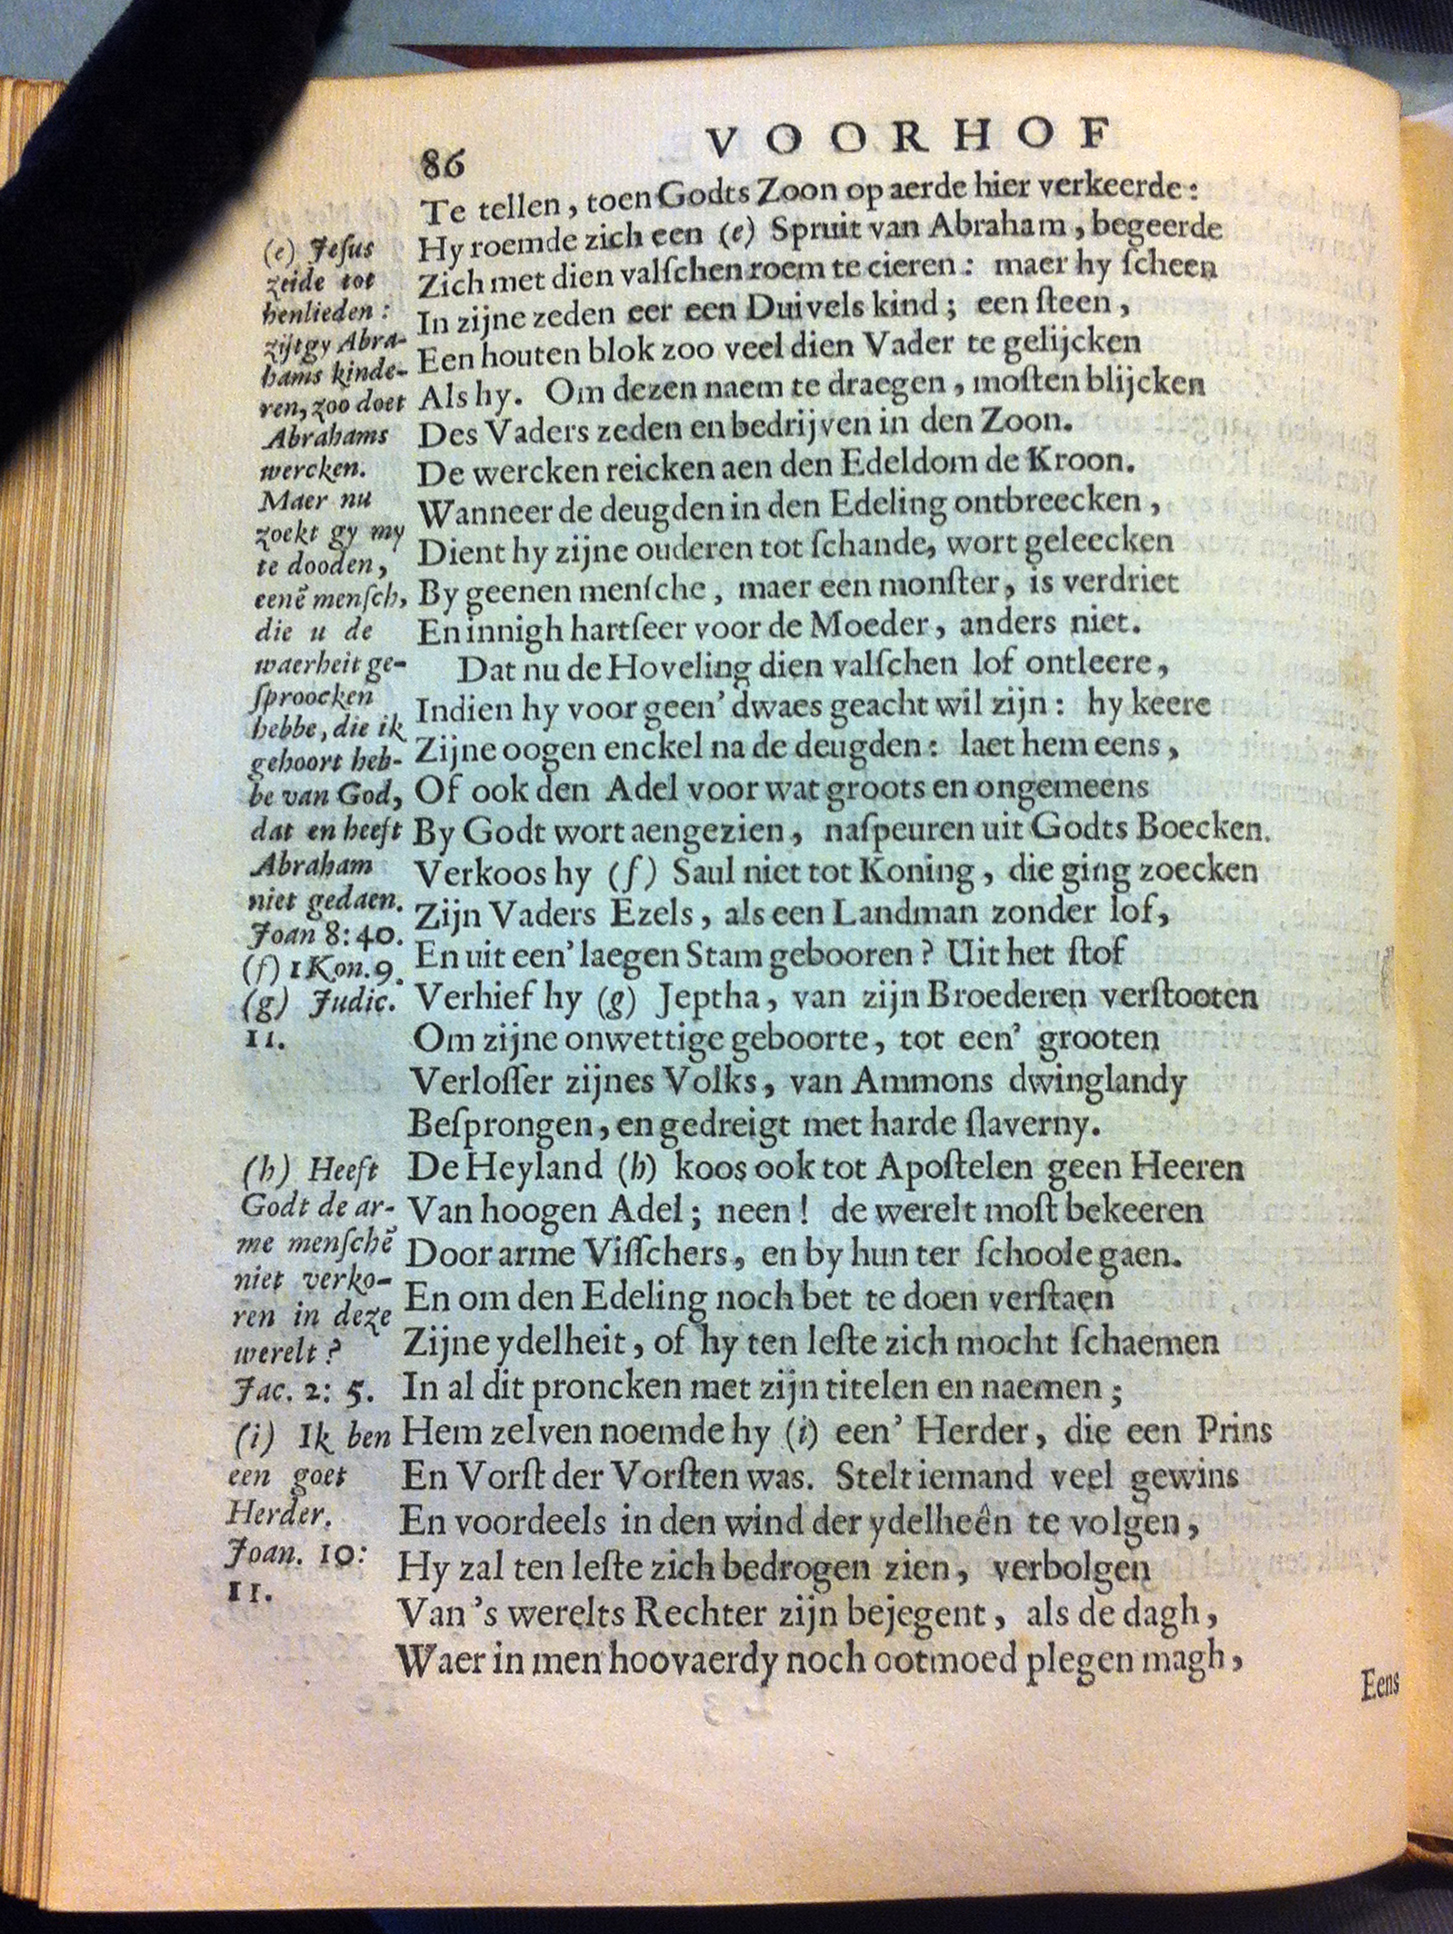 86
VOORHOF
Te tellen, toen Godts Zoon op aerde hier verkeerde:
Hy roemde zich een (e) Spruit van Abraham, begeerde
Zich met dien valſchen roem te cieren: maer hy ſcheen
In zijne zeden eer een Duivels kind; een ſteen,
Een houten blok zoo veel dien Vader te gelijcken
Als hy. Om dezen naem te draegen, moſten blijcken
Des Vaders zeden en bedrijven in den Zoon.
De wercken reicken aen den Edeldom de Kroon.
Wanneer de deugden in den Edeling ontbreecken,
Dient hy zijne ouderen tot ſchande, wort geleecken
By geenen menſche, maer een monſter, is verdriet
En innigh hartſeer voor de Moeder, anders niet.
Dat nu de Hoveling dien valſchen lof ontleere,
Indien hy voor geen' dwaes geacht wil zijn: hy keere
Zijne oogen enckel na de deugden: laet hem eens,
Of ook den Adel voor wat groots en ongemeens
By Godt wort aengezien, naſpeuren uit Godts Boecken.
Verkoos hy (f) Saul niet tot Koning, die ging zoecken
Zijn Vaders Ezels, als een Landman zonder lof,
En uit een' laegen Stam gebooren? Uit het ſtof
Verhief hy (g) Jeptha, van zijn Broederen verſtooten
Om zijne onwettige geboorte, tot een' grooten
Verloſſer zijnes Volks, van Ammons dwinglandy
Beſprongen, en gedreigt met harde ſlaverny.
De Heyland (h) koos ook tot Apoſtelen geen Heeren
Van hoogen Adel; neen! de werelt moſt bekeeren
Door arme Viſſchers, en by hun ter ſchoole gaen.
En om den Edeling noch bet te doen verſtaen
Zijne ydelheit, of hy ten leſte zich mocht ſchaemen
In al dit proncken met zijn titelen en naemen;
Hem zelven noemde hy (i) een' Herder, die een Prins
En Vorſt der Vorſten was. Stelt iemand veel gewins
En voordeels in den wind der ydelheên te volgen,
Hy zal ten leſte zich bedrogen zien, verbolgen
Van 's werelts Rechter zijn bejegent, als de dagh,
Waer in men hoovaerdy noch ootmoed plegen magh,
Eens
(e) Jeſus
zeide tot
henlieden:
zijt gy Abra-
hams kinde-
ren, zoo doet
Abrahams
wercken.
Maer nu
zoekt gy my
te dooden,
eenẽ menſch,
die u de
waerheit ge-
ſproocken
hebbe, die ik
gehoort heb-
be van God,
dat en heeft
Abraham
niet gedaen.
Joan 8: 40.
(f) 1 Kon. 9.
(g) Judic.
11.
(h) Heeft
Godt de ar-
me menſchẽ
niet verko-
ren in deze
werelt?
Jac. 2: 5.
(i) Ik ben
een goet
Herder.
Joan. 10:
11.